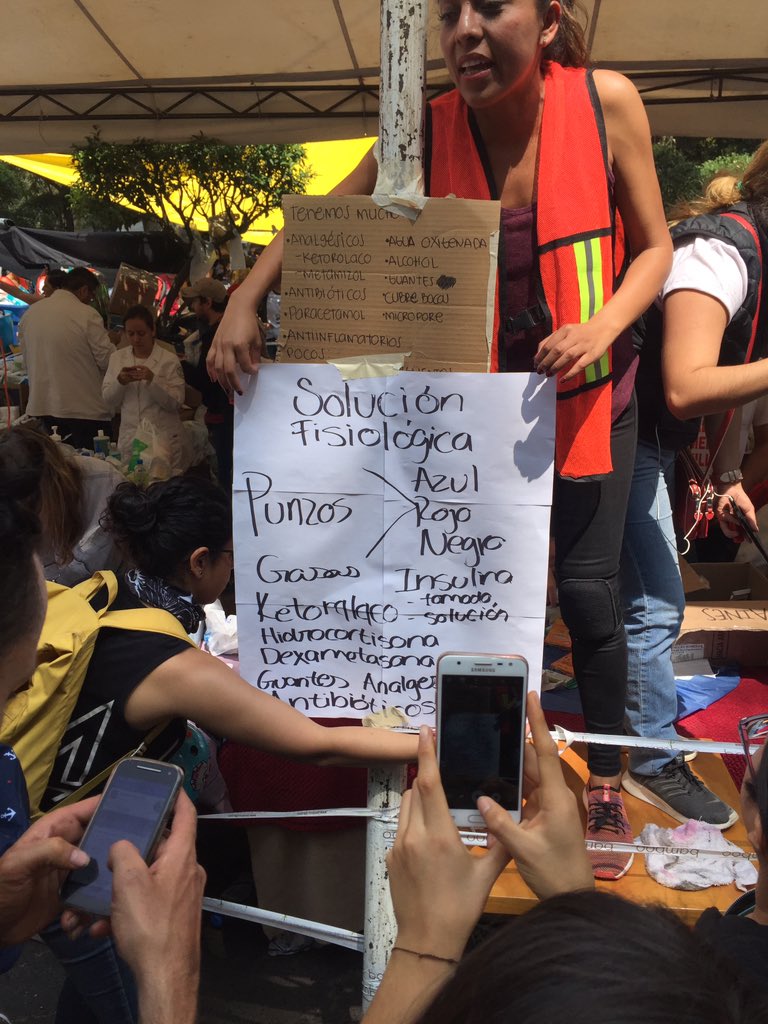 Tenemos
• Analgésicos
- Ketorolaco
- Metamizol
• Antibióticos
• Paracetamol
• Antiinflamatorios
Pocos
• Agua oxigenada
• Alcohol
• Guantes
• Cubre bocas
• Micropore
Solución
Fisiológica
Punzos
Azul
Rojo
Negro
Gasas
Insulina
- tomada
- solución
Ketorolaco
Hidrocortisona
Dexametasona
Guantes
Antibióticos
SAMSUNG
bamboo